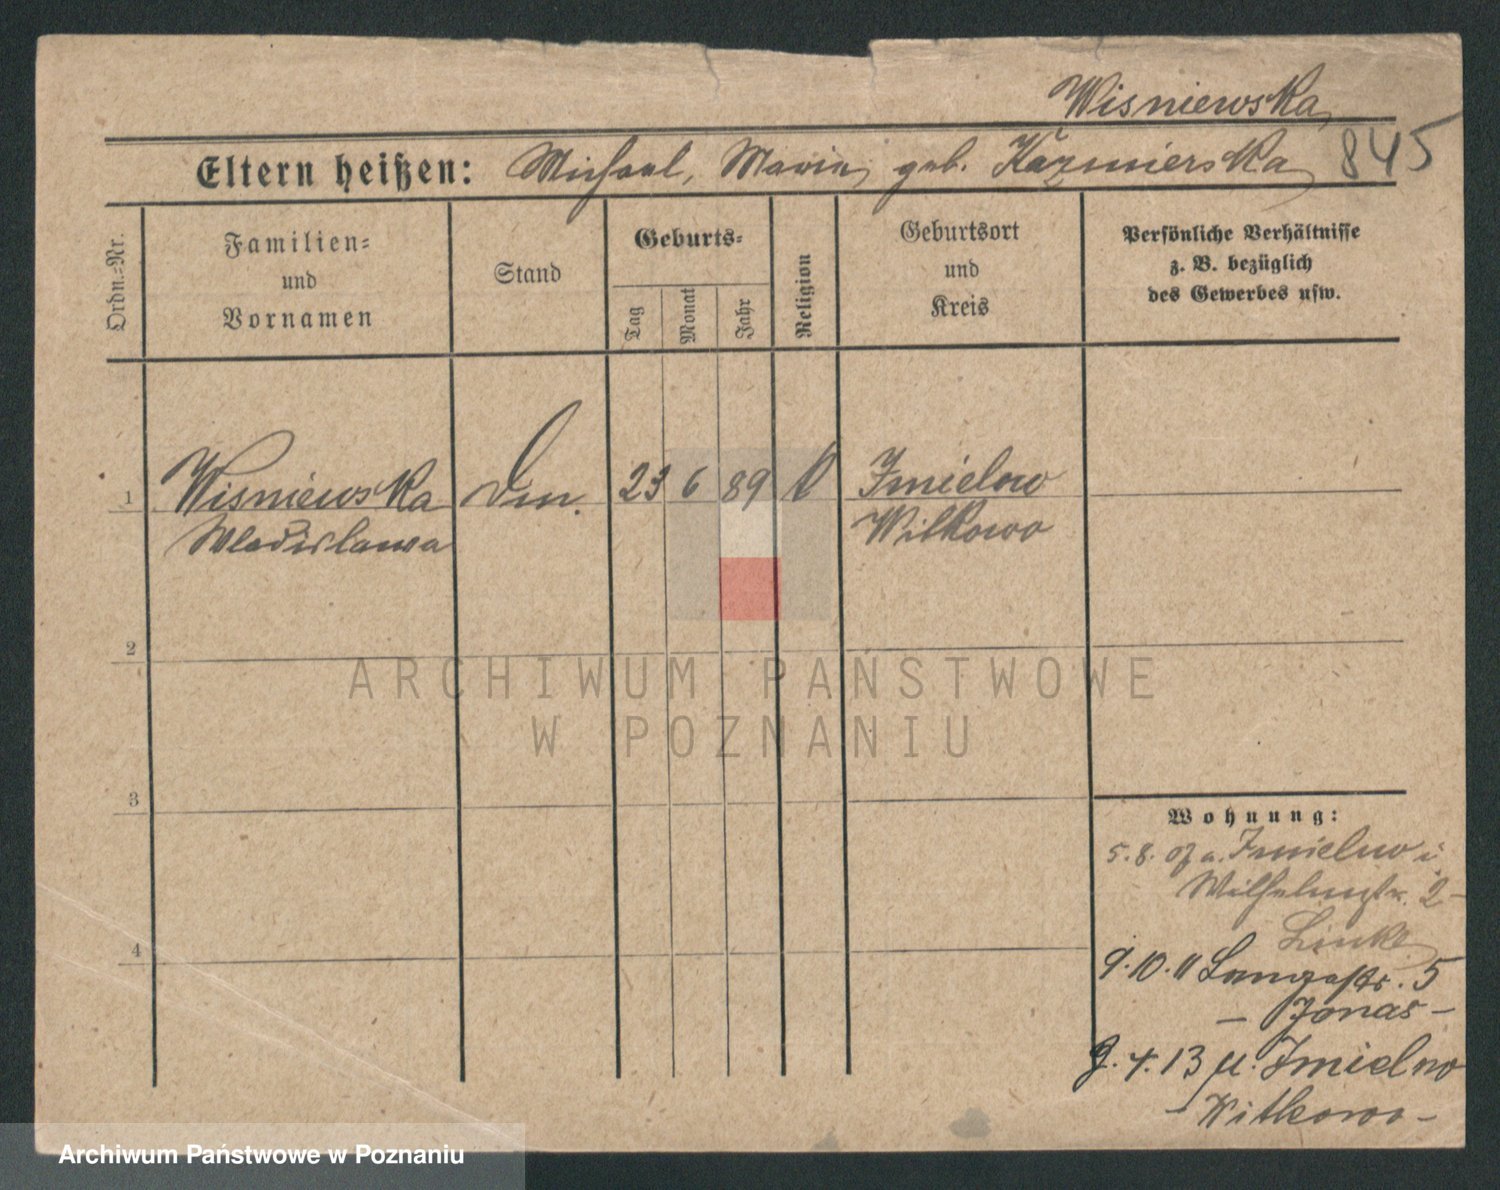 Wisniewska
Eltern heißen: Michael, Maria, geb. Kazmierska 845
Ordn.-Nr.
Familien-
und
Vornamen
Stand
Geburts-
Tag
Monat
Jahr
Religion
Geburtsort
und
Kreis
Persönliche Verhältnisse
z. B. bezüglich
des Gewerbes usw.
1 Wisniewska 23 6 89 k Imielno
Wladislawa Witkowo
2
ARCHIWUM PAŃSTWOWE
W POZNANIU
3
4
Wohnung:
5.8.07 a. Imielno i
Wilhelmstr. 2-
Linke
9.10.11 Langestr. 5
- Jonas -
9.4.13 Imielno
- Witkowo -
Archiwum Państwowe w Poznaniu